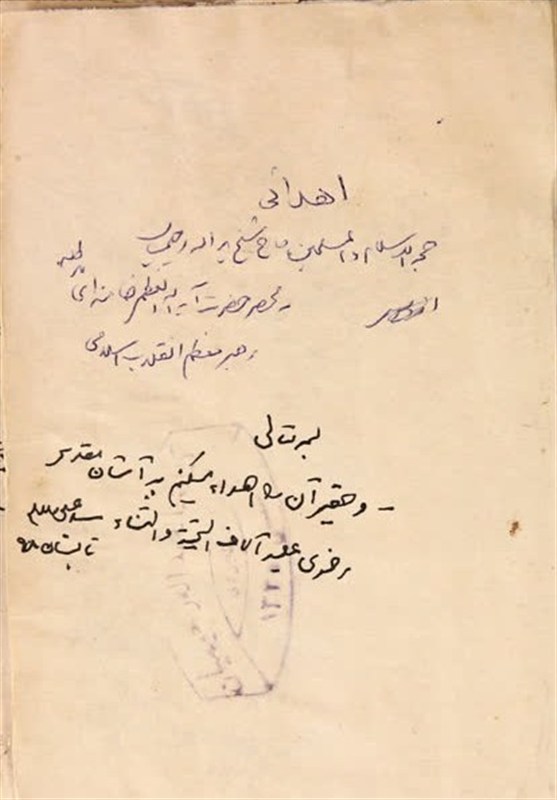 اهدائی
حجة الاسلام والمسلمین حاج شیخ یداله رحیمیان
به محضر حضرت آیة اله العظمی خامنه ای مدظله
رهبر معظم انقلاب اسلامی
بسمه تعالی
و حقیر آن را اهداء میکنم به آستان مقدس
رضوی علیه آلاف التحیة والثناء سید علی خامنه
تابستان